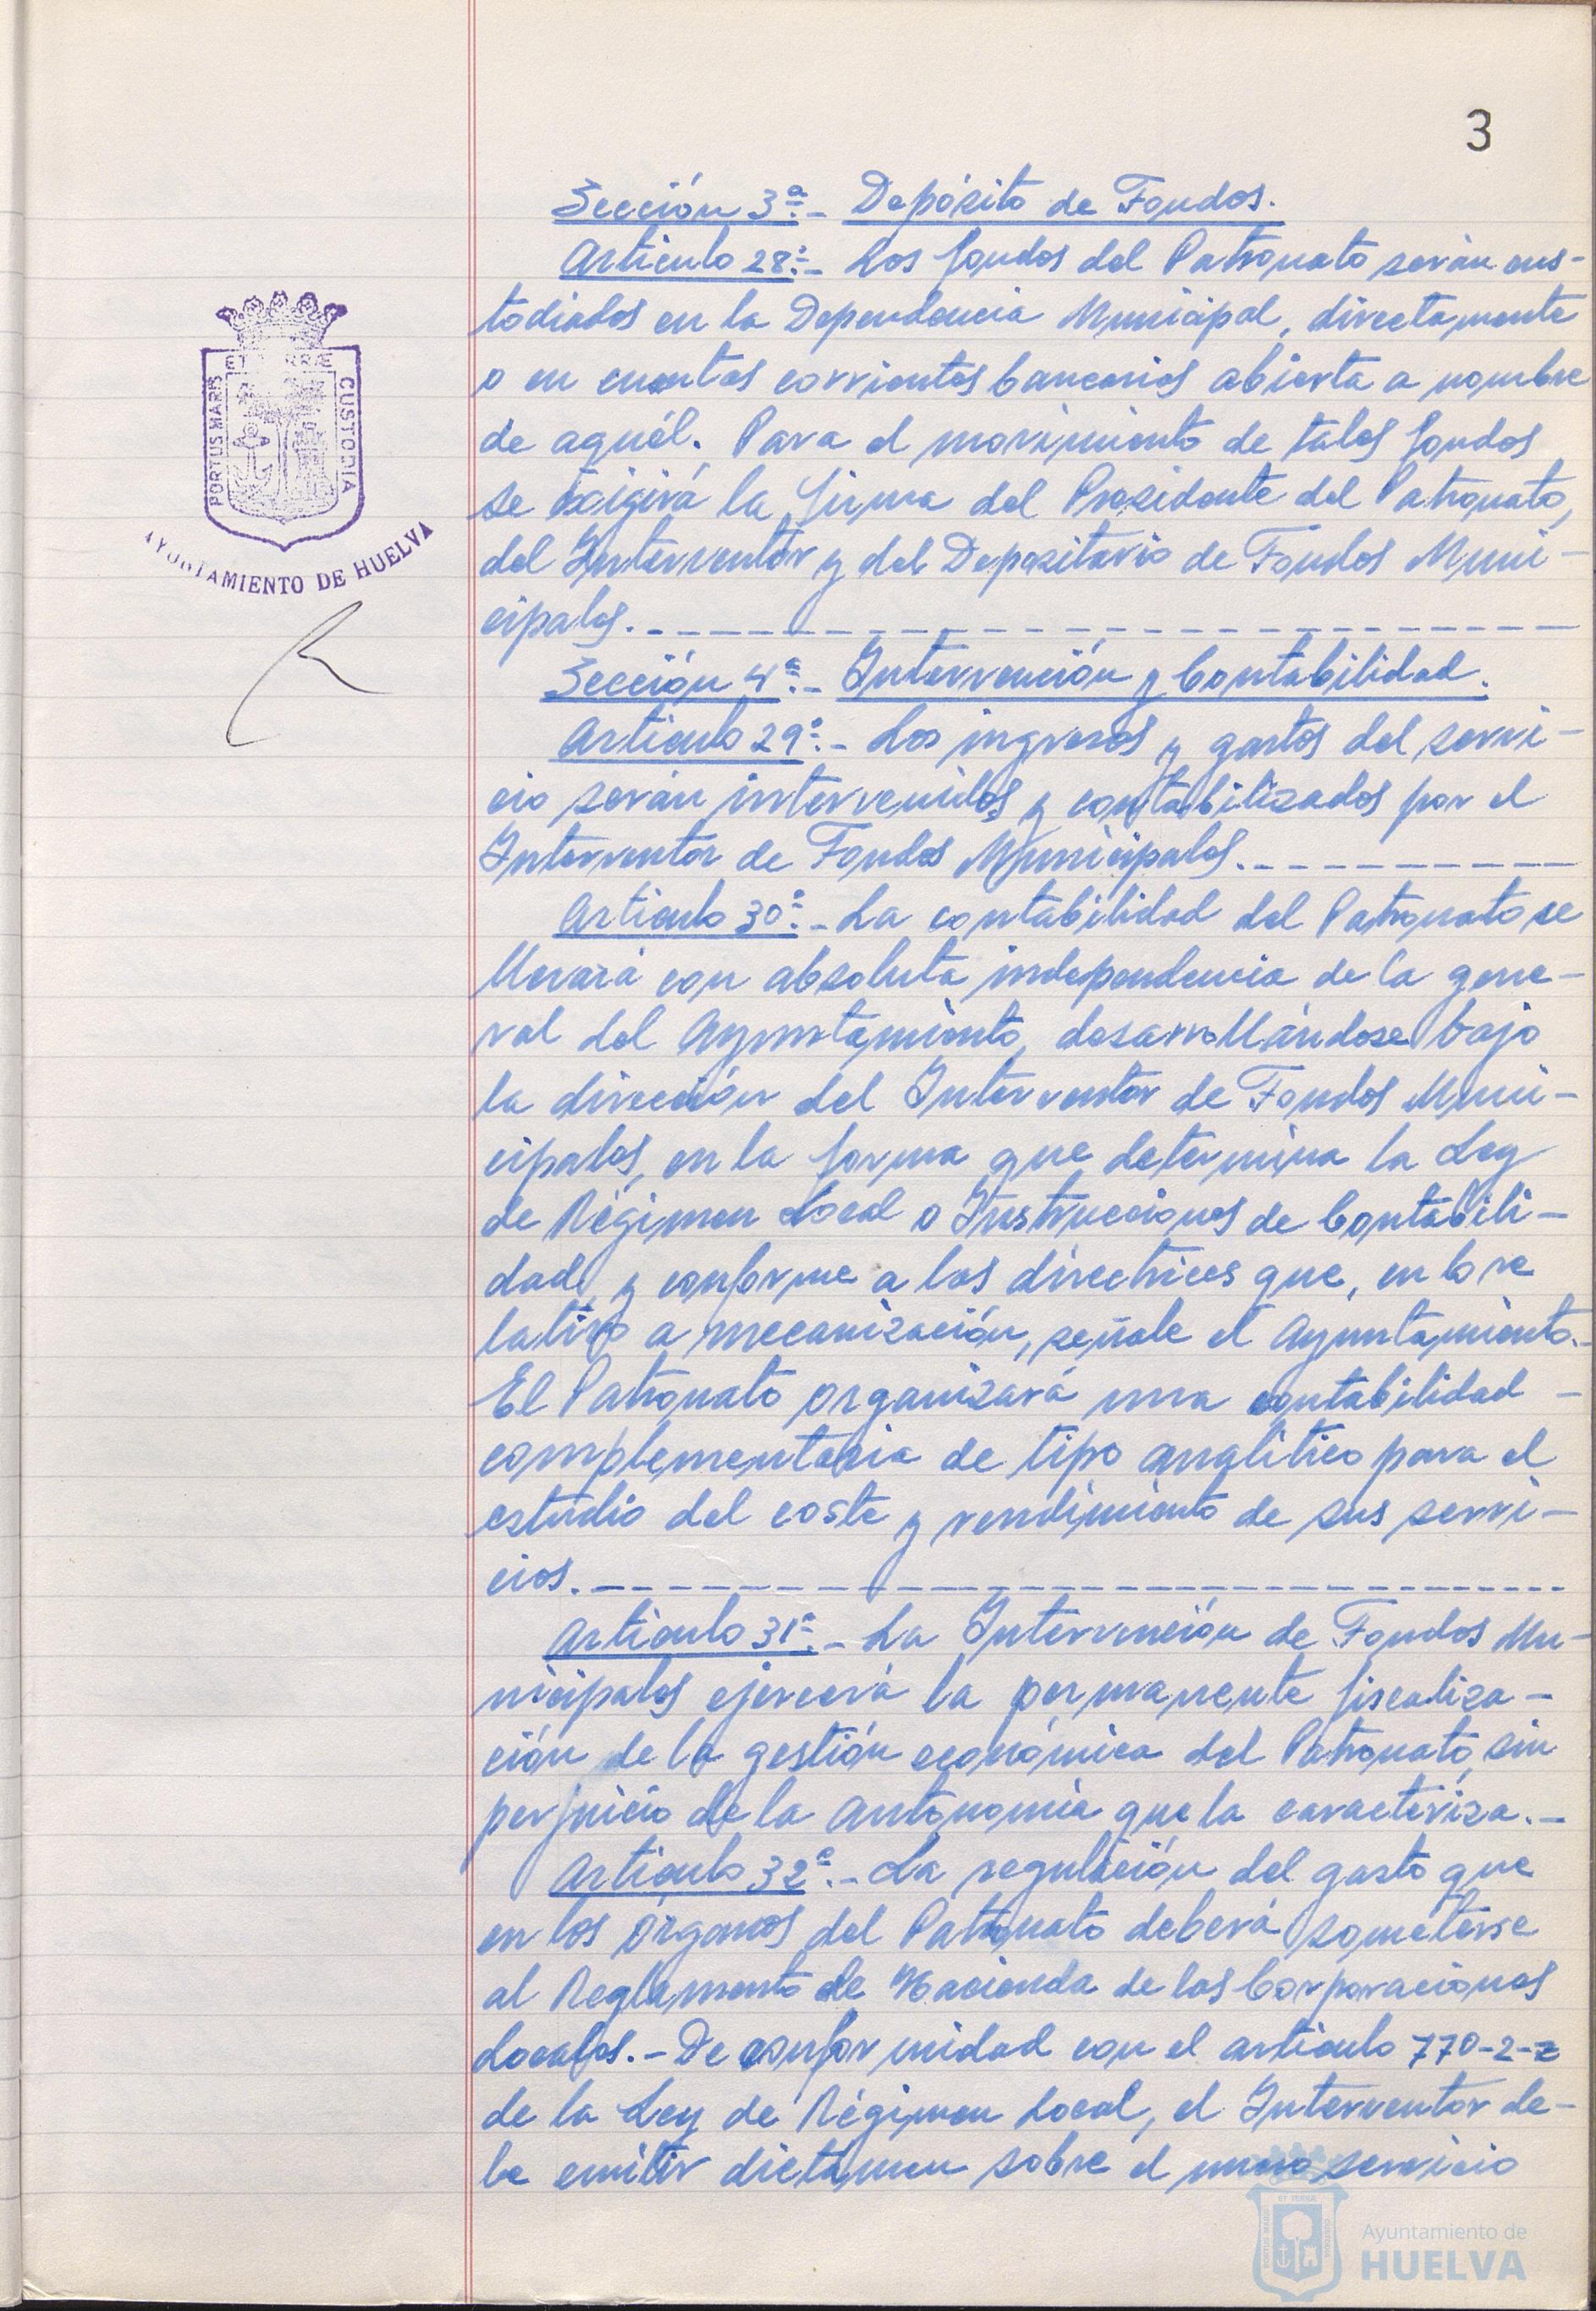 3
Sección 3ª.- Depósito de Fondos.
Artículo 28º.- Los fondos del Patronato serán cus-
todiados en la Dependencia Municipal, directamente
o en cuentas corrientes bancarias abierta a nombre
de aquél. Para el movimiento de tales fondos
se exigirá la firma del Presidente del Patronato,
del Interventor y del Depositario de Fondos Muni-
cipales.
Sección 4ª.- Intervención y Contabilidad.
Artículo 29º.- Los ingresos y gastos del servi-
cio serán intervenidos y contabilizados por el
Interventor de Fondos Municipales.
Artículo 30º.- La contabilidad del Patronato se
llevará con absoluta independencia de la gene-
ral del Ayuntamiento, desarrollándose bajo
la dirección del Interventor de Fondos Muni-
cipales, en la forma que determina la Ley
de Régimen Local o Instrucciones de Contabili-
dad, y conforme a las directrices que, en lo re
lativo a mecanización, señale el Ayuntamiento.-
El Patronato organizará una contabilidad -
complementaria de tipo analítico para el
estudio del coste y rendimiento de sus servi-
cios.
Artículo 31º.- La Intervención de Fondos Mu-
nicipales ejercerá la permanente fiscaliza-
ción de la gestión económica del Patronato, sin
perjuicio de la autonomía que la caracteriza.-
Artículo 32º.- La regulación del gasto que
en los órganos del Patronato deberá someterse
al Reglamento de Hacienda de las Corporaciones
Locales.- De conformidad con el artículo 770-2-
de la Ley de Régimen Local, el Interventor de-
be emitir dictámen sobre el nuevo servicio
PORTUS MARIS
ET TERRÆ
CUSTODIA
AYUNTAMIENTO DE HUELVA
Ayuntamiento de
HUELVA